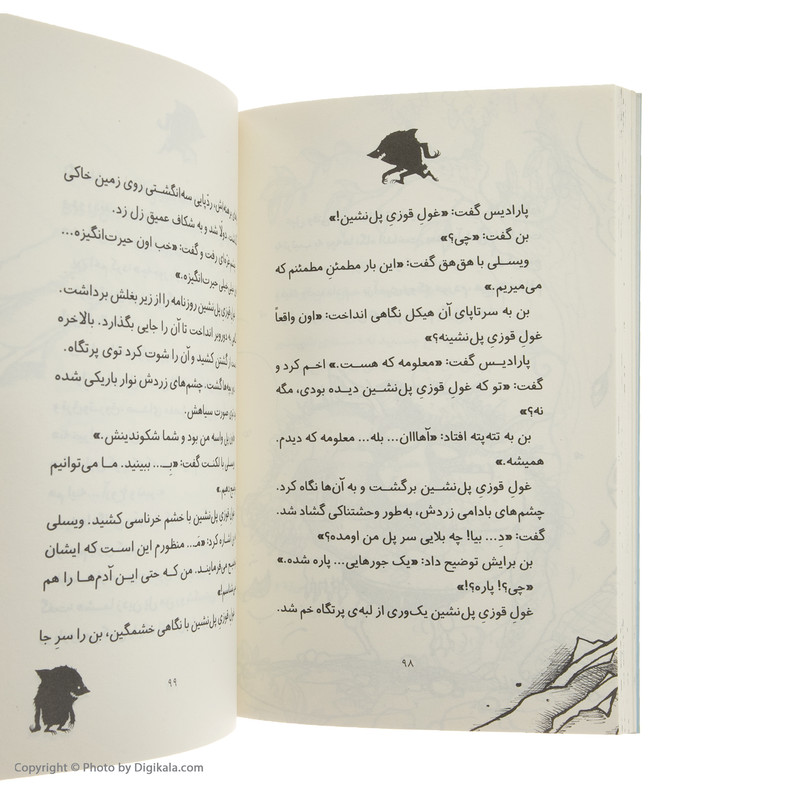 پارادیس گفت: «غولِ قوزیِ پل‌نشین!»
بن گفت: «چی؟»
ویسلی با هق‌هق گفت: «این بار مطمئنِ مطمئنم که
می‌میریم.»
بن به سرتاپای آن هیکل نگاهی انداخت: «اون واقعاً
غولِ قوزیِ پل‌نشینه؟»
پارادیس گفت: «معلومه که هست.» اخم کرد و
گفت: «تو که غولِ قوزیِ پل‌نشین دیده بودی، مگه
نه؟»
بن به تته‌پته افتاد: «آهااان... بله... معلومه که دیدم.
همیشه.»
غولِ قوزیِ پل‌نشین برگشت و به آن‌ها نگاه کرد.
چشم‌های بادامی زردش، به‌طور وحشتناکی گشاد شد.
گفت: «دِ... بیا! چه بلایی سر پل من اومده؟»
بن برایش توضیح داد: «یک جورهایی... پاره شده.»
«چی؟! پاره؟!»
غولِ قوزیِ پل‌نشین یک‌وری از لبه‌ی پرتگاه خم شد.
۹۸
ردّپایی سه‌انگشتی روی زمین خاکی
دولّا شد و به شکاف عمیق زل زد.
رفت و گفت: «خب اون حیرت‌انگیزه...
حیرت‌انگیزه.»
پل‌نشین روزنامه را از زیر بغلش برداشت.
دوروبر انداخت تا آن را جایی بگذارد. بالاخره
از گشتن کشید و آن را شوت کرد توی پرتگاه.
گشت. چشم‌های زردش نوار باریکی شده
صورت سیاهش.
پل واسه من بود و شما شکوندینش.»
ویسلی با لکنت گفت: «بِـ... ببینید. ما می‌توانیم
پل‌نشین با خشم خرناسی کشید. ویسلی
اشاره کرد: «مَـ... منظورم این است که ایشان
می‌فرمایند. من که حتی این آدم‌ها را هم
قوزیِ پل‌نشین با نگاهی خشمگین، بن را سرِ جا
۹۹
Copyright © Photo by Digikala.com